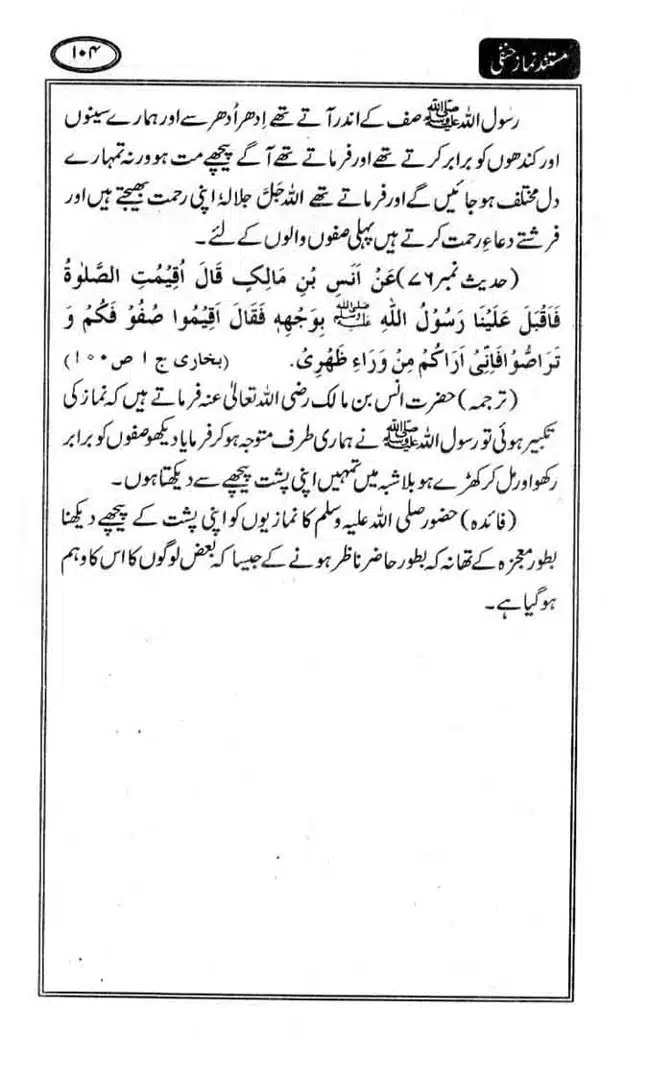 مستند نماز حنفی
۱۰۴
رسول اللہ ﷺ صف کے اندر آتے تھے اِدھر اُدھر سے اور ہمارے سینوں
اور کندھوں کو برابر کرتے تھے اور فرماتے تھے آگے پیچھے مت ہو ورنہ تمہارے
دل مختلف ہو جائیں گے اور فرماتے تھے اللہ جَلَّ جلالہٗ اپنی رحمت بھیجتے ہیں اور
فرشتے دعاءِ رحمت کرتے ہیں پہلی صفوں والوں کے لئے۔
(حدیث نمبر ۷۶) عَنْ اَنَسِ بْنِ مَالِکٍ قَالَ اُقِیْمُتِ الصَّلٰوۃُ
فَاَقْبَلَ عَلَیْنَا رَسُوْلُ اللّٰہِ ﷺ بِوَجْھِہٖ فَقَالَ اَقِیْمُوا صُفُوْ فَکُمْ وَ
تَرَاصُّوْا فَاِنِّیْ اَرَاکُمْ مِنْ وَرَاءِ ظَھْرِیْ. (بخاری ج ۱ ص ۱۰۰)
(ترجمہ) حضرت انس بن مالک رضی اللہ تعالیٰ عنہ فرماتے ہیں کہ نماز کی
تکبیر ہوئی تو رسول اللہ ﷺ نے ہماری طرف متوجہ ہو کر فرمایا دیکھو صفوں کو برابر
رکھو اور مل کر کھڑے ہو بلا شبہ میں تمہیں اپنی پشت پیچھے سے دیکھتا ہوں۔
(فائدہ) حضور صلی اللہ علیہ وسلم کا نمازیوں کو اپنی پشت کے پیچھے دیکھنا
بطور معجزہ کے تھا نہ کہ بطور حاضر ناظر ہونے کے جیسا کہ بعض لوگوں کا اس کا وہم
ہو گیا ہے۔